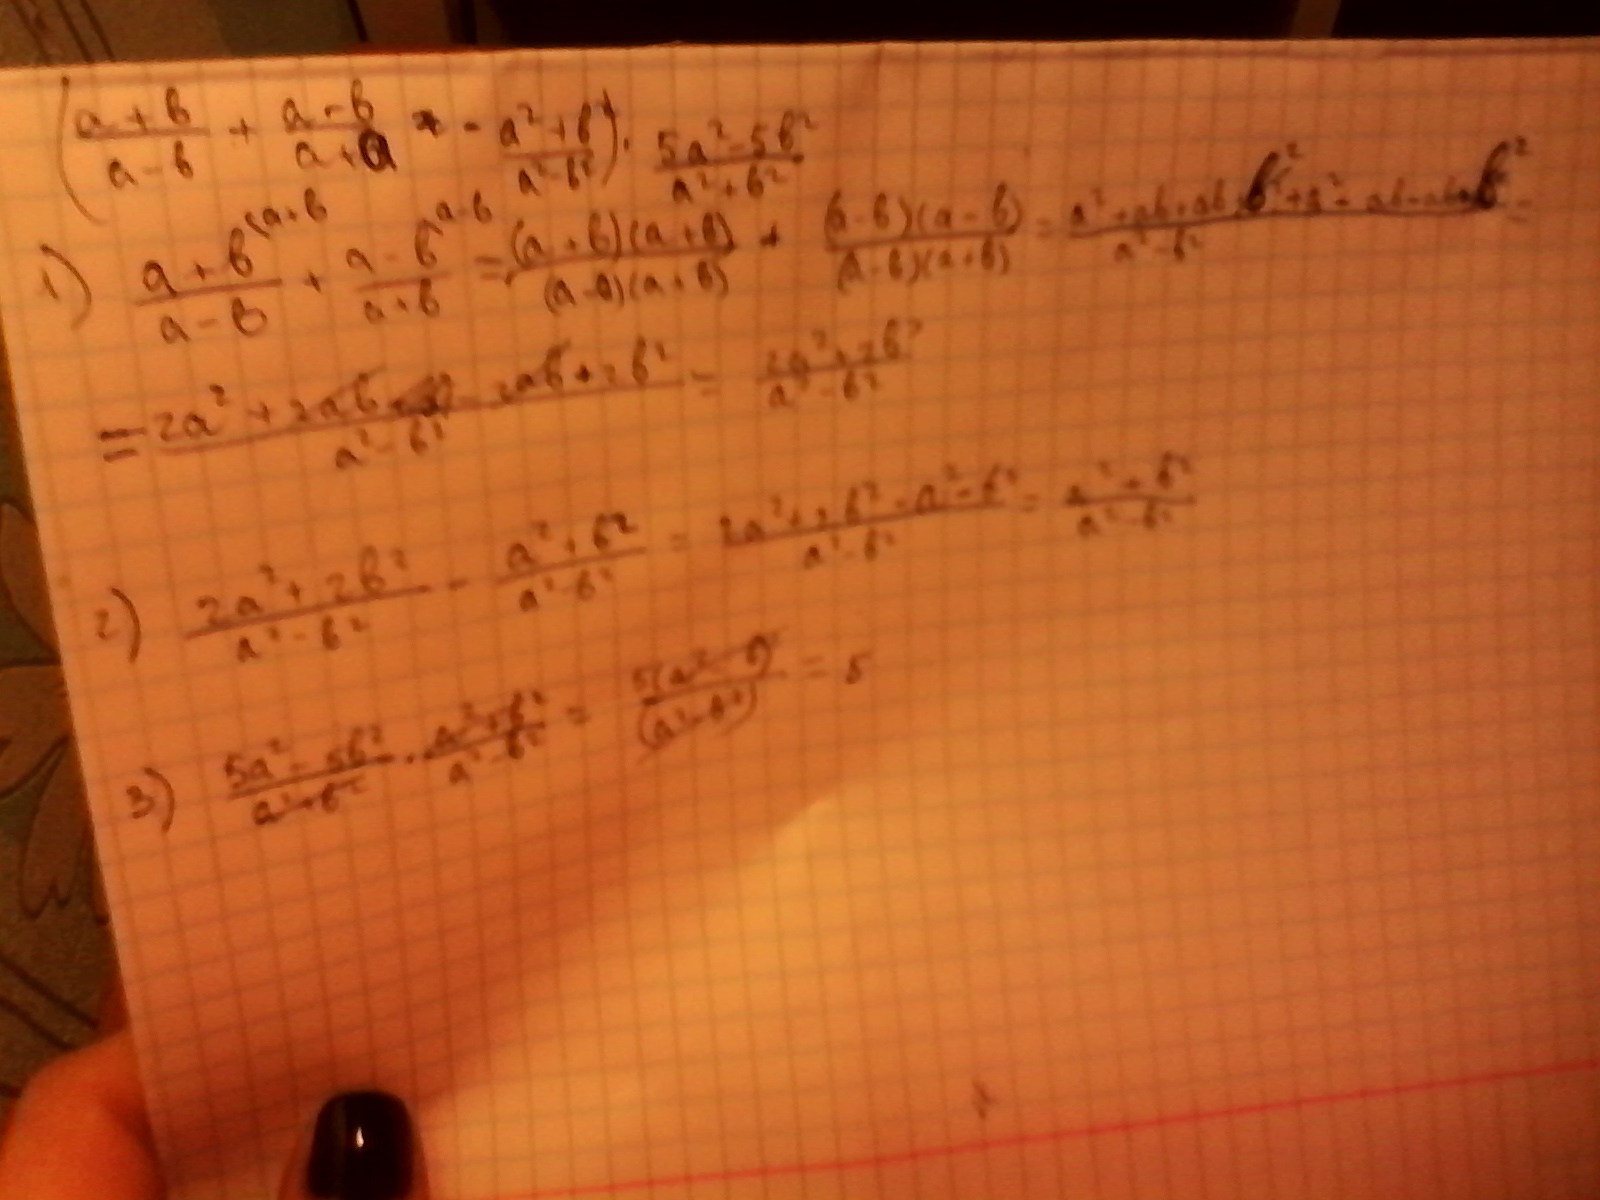 (a+b/a-b + a-b/a+a - a²+b²/a²-b²) · 5a²-5b²/a²+b²
1) a+b/a-b (a+b + a-b/a+b a-b = (a+b)(a+b)/(a-b)(a+b) + (a-b)(a-b)/(a-b)(a+b) = a²+ab+ab+b²+a²-ab-ab+b²/a²-b² =
= 2a²+2ab-2ab+2b²/a²-b² = 2a²+2b²/a²-b²
2) 2a²+2b²/a²-b² - a²+b²/a²-b² = 2a²+2b²-a²-b²/a²-b² = a²+b²/a²-b²
3) 5a²-5b²/a²+b² · a²+b²/a²-b² = 5(a²-b²)/(a²-b²) = 5